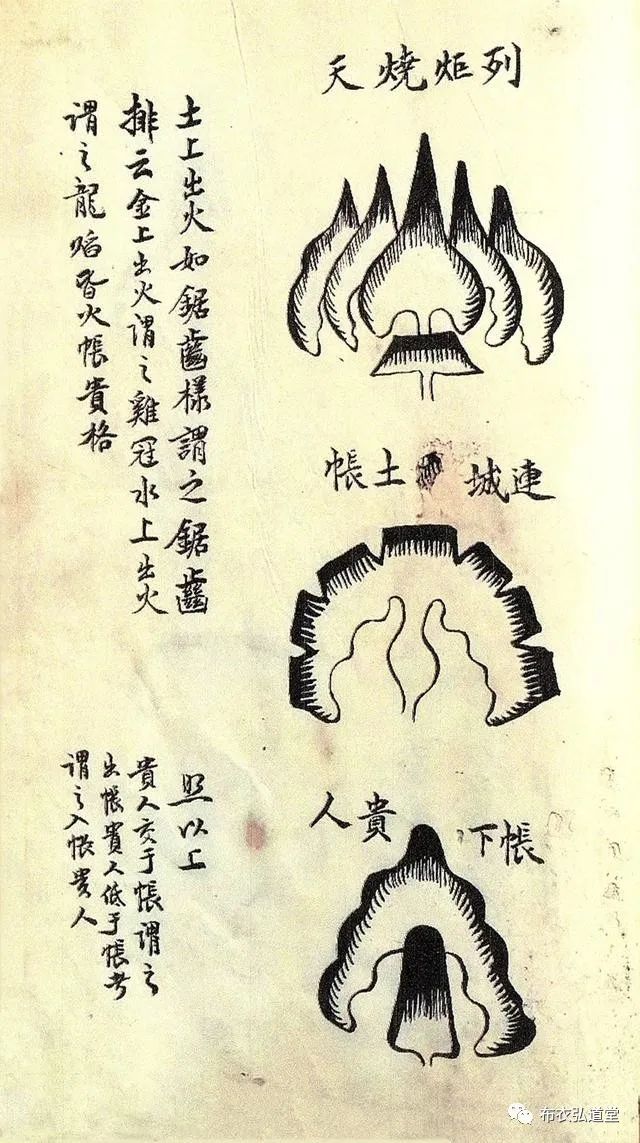 列炬燒天
土上出火如鋸齒樣謂之鋸齒
排云金上出火謂之雞冠水上出火
謂之龍焰皆火帳貴格
連城土帳
帳下貴人
照以上
貴人于帳謂之
出帳貴人低于帳者
謂之入帳貴人
布衣弘道堂